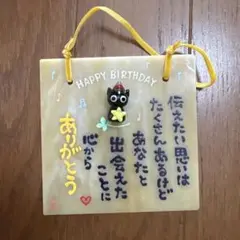 HAPPY BIRTHDAY
伝えたい思いは
たくさんあるけど
あなたと
出会えた
ことに
心から
ありがとう